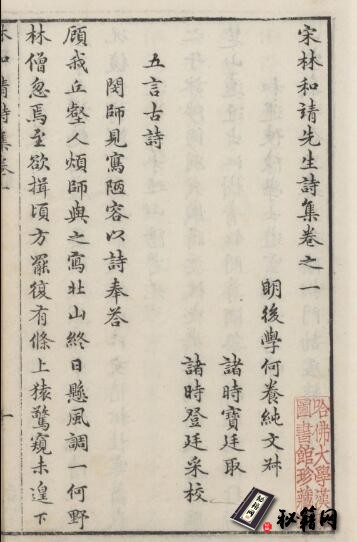 宋林和靖先生詩集卷之一
明後學何養純文
諸時寶廷取
諸時登廷采校
五言古詩
閔師見寫陋容以詩奉答
顧我丘壑人煩師與之寫北山終日懸風調一何野
林僧忽焉至欲揖頃方罷復有條上猿驚窺未遑下
林和靖詩集卷一
一
哈佛大學漢
圖書館珍藏
秘籍网